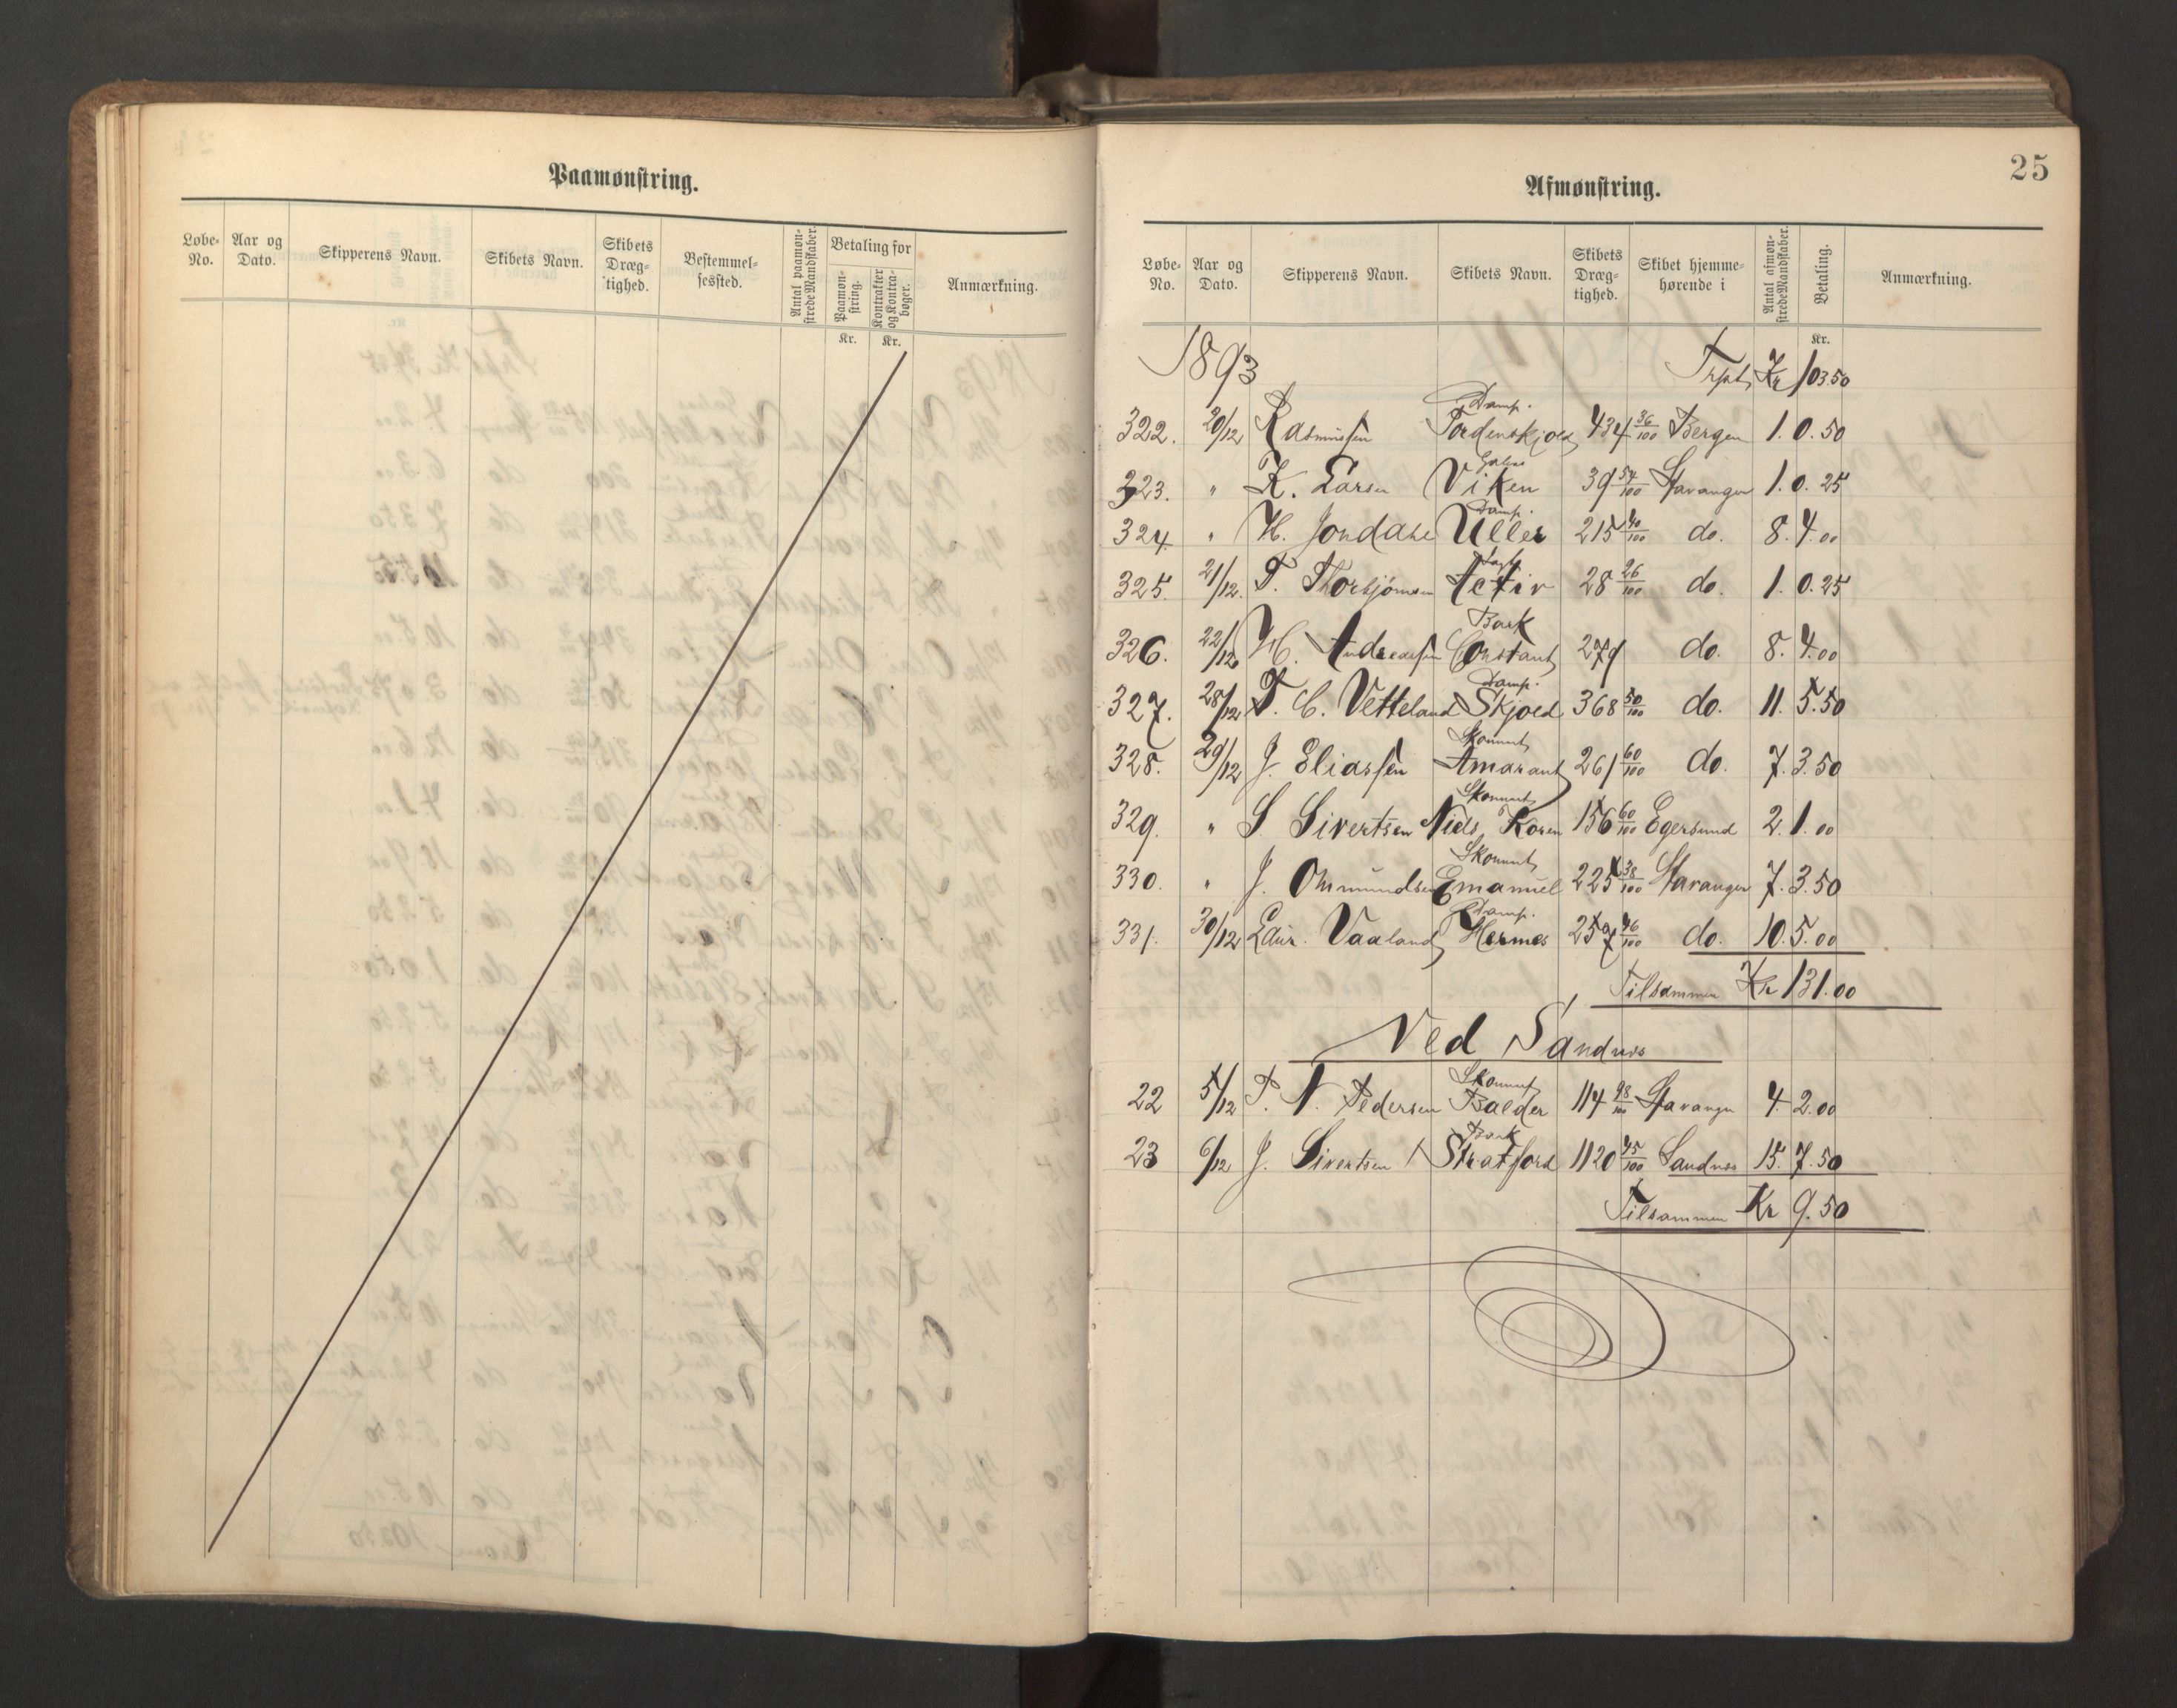 Paamønstring.
Løbe-No. Aar og Dato. Skipperens Navn. Skibets Navn. Skibets Dræg-tighed. Bestemmel-sessted. Antal paamøn-strede Mandskaber. Betaling for Paamøn-string. Kontrakter og Kontra-bøger. Anmærkning.
Kr. Kr.
25
Afmønstring.
Løbe-No. Aar og Dato. Skipperens Navn. Skibets Navn. Skibets Dræg-tighed. Skibet hjemme-hørende i Antal afmøn-strede Mandskaber. Betaling. Anmærkning.
Kr.
1893 Trpt Kr 103 50
Damp.
322. 20/12 Rasmussen Tordenskjold 434 36/100 Bergen 1. 0.50
Galeas
323. " K. Larsen Viken 39 54/100 Stavanger 1. 0.25
Damp.
324. " H. Jondahl Uller 215 40/100 do. 8. 4.00
325. 21/12. T. Thorbjørnsen Activ 28 26/100 do. 1. 0.25
Bark
326. 22/12 H. Andreassen Constant 279 do. 8. 4.00
Damp.
327. 28/12 T. C. Vetteland Skjold 368 50/100 do. 11. 5.50
Skonnert
328. 29/12 J. Eliassen Amarant 261 60/100 do. 7. 3.50
Skonnert
329. " S. Sivertsen Niels Koren 156 60/100 Egersund 2. 1.00
Skonnert
330. " J. Omundsen Emanuel 225 38/100 Stavanger 7. 3.50
Damp.
331. 30/12 Laur. Vaaland Hermes 257 46/100 do. 10. 5.00
Tilsammen Kr 131.00
Ved Sandnes
Skonnert
22 5/12 P. N. Pedersen Balder 114 98/100 Stavanger 4. 2.00
Bark
23 6/12 J. Sivertsen Stratford 1120 45/100 Sandnes 15. 7.50
Tilsammen Kr 9.50